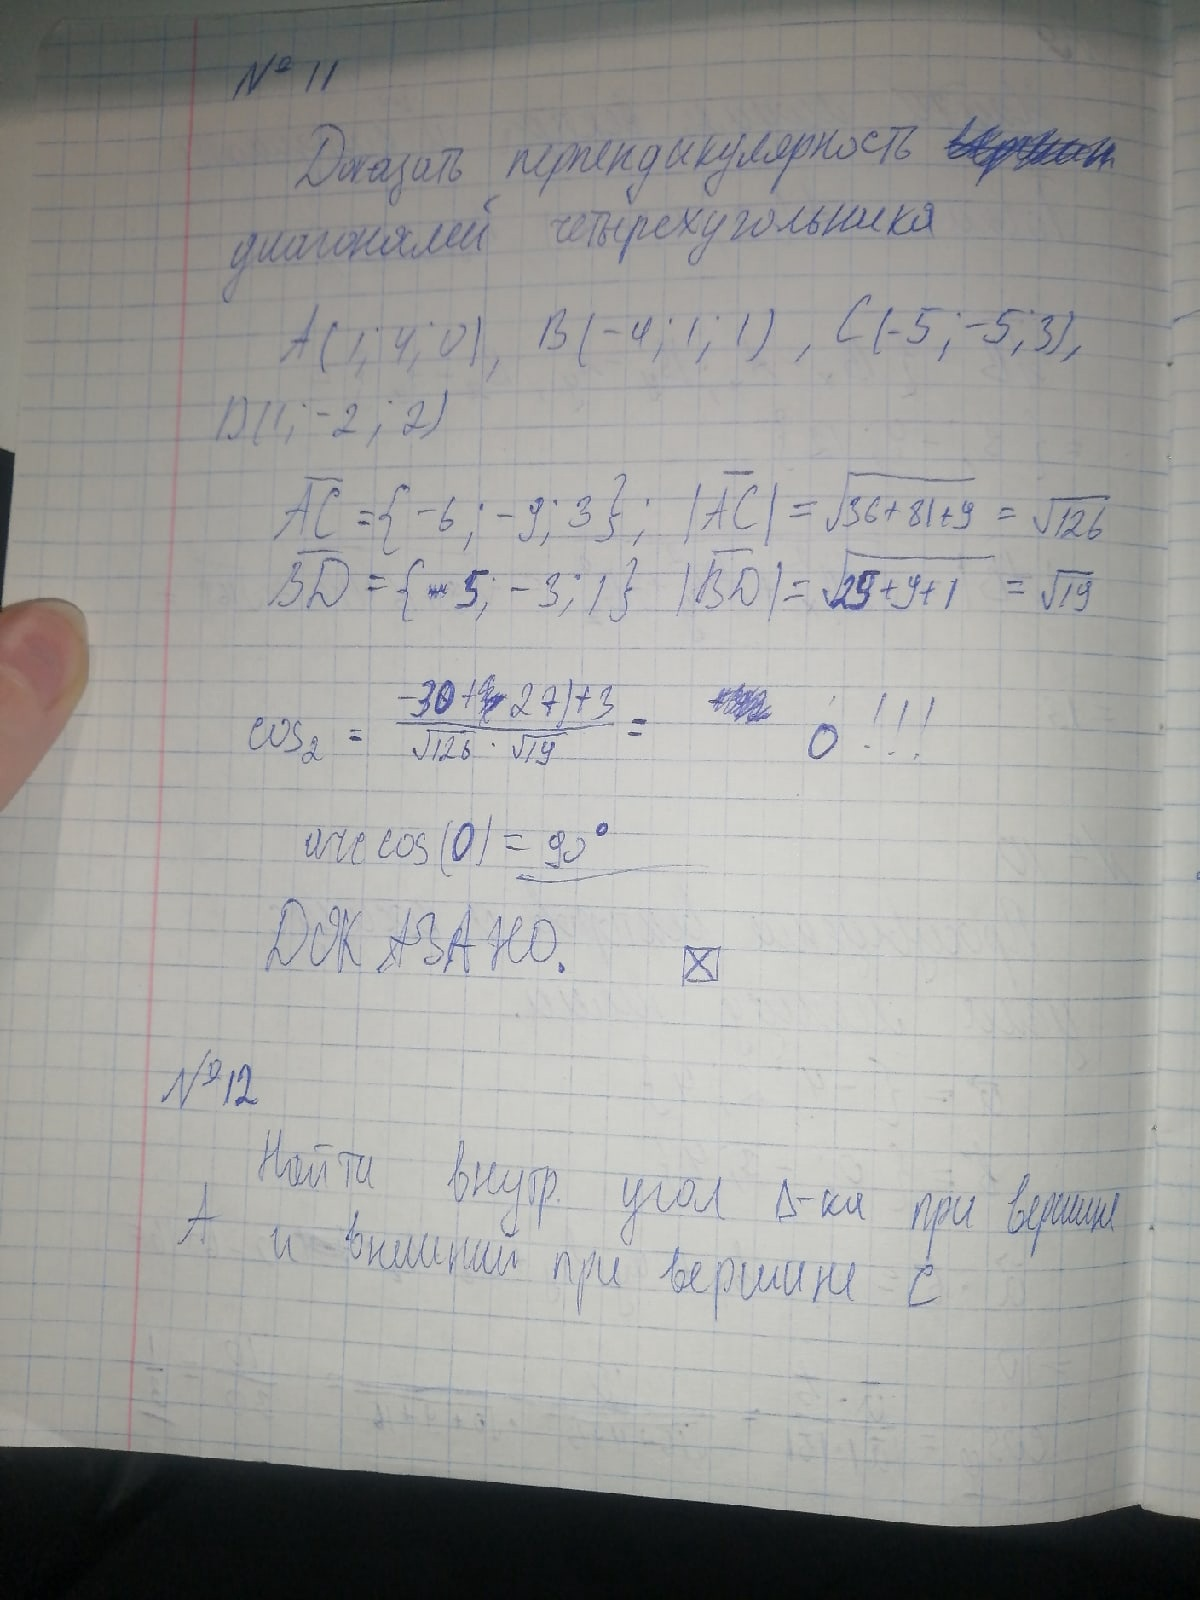 № 11
Доказать перпендикулярность
диагоналей четырехугольника
A(1; 4; 0), B(-4; 1; 1), C(-5; -5; 3),
D(1; -2; 2)
AC = {-6; -9; 3}; |AC| = √36+81+9 = √126
BD = {5; -3; 1} |BD| = √25+9+1 = √19
cos₂ = -30+(27)+3 / √126 · √19 = 0 !!!
arccos(0) = 90°
ДОКАЗАНО.
№12
Найти внутр. угол Δ-ка при вершине
A и внешний при вершине C